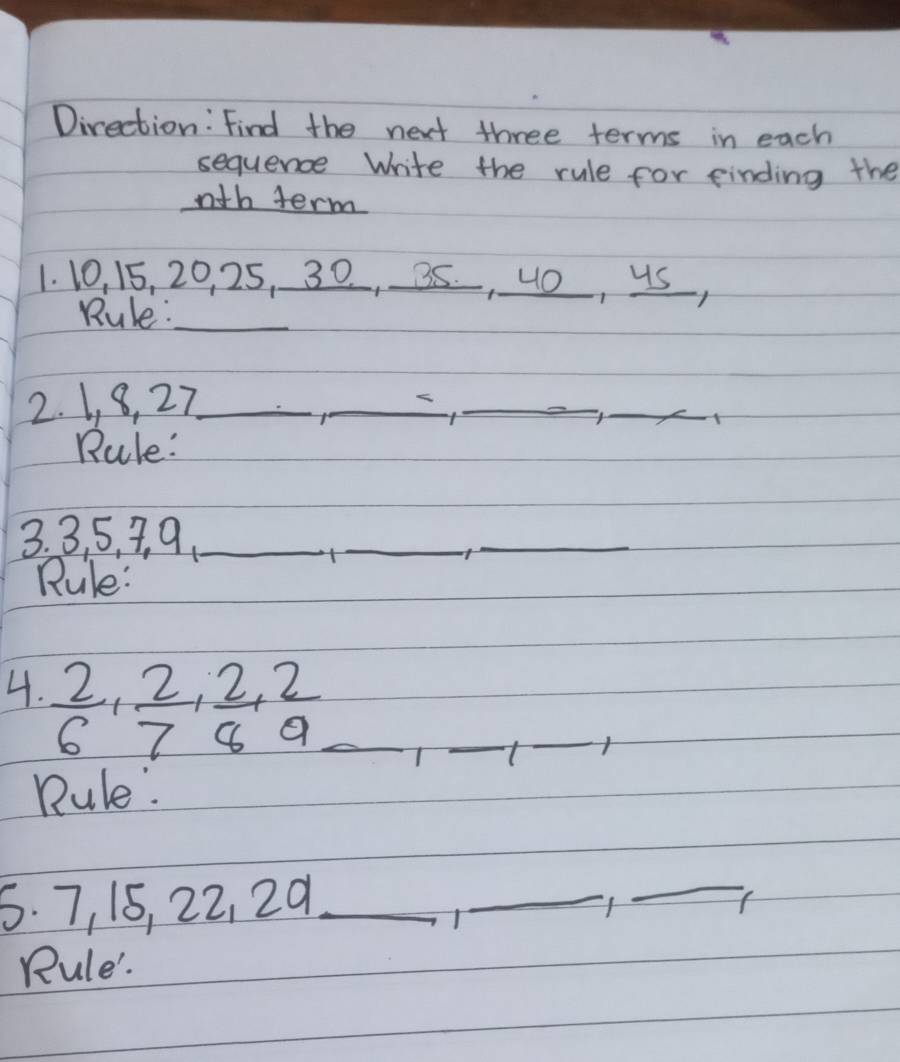 Direction: Find the next three terms in each
sequence Write the rule for finding the
nth term
1. 10, 15, 20, 25, 30, 35, 40, 45,
Rule: ____
2. 1, 8, 27 ____, ____, ____, ____,
Rule:
3. 3, 5, 7, 9, ____, ____, ____
Rule:
4. 2/6, 2/7, 2/8, 2/9 ____, ____, ____,
Rule:
5. 7, 15, 22, 29 ____, ____, ____,
Rule: